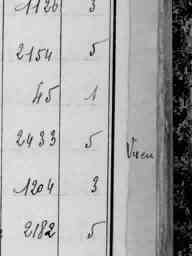 1126 3
2154 5
45 1
2433 5
Vireu
1204 3
2182 5